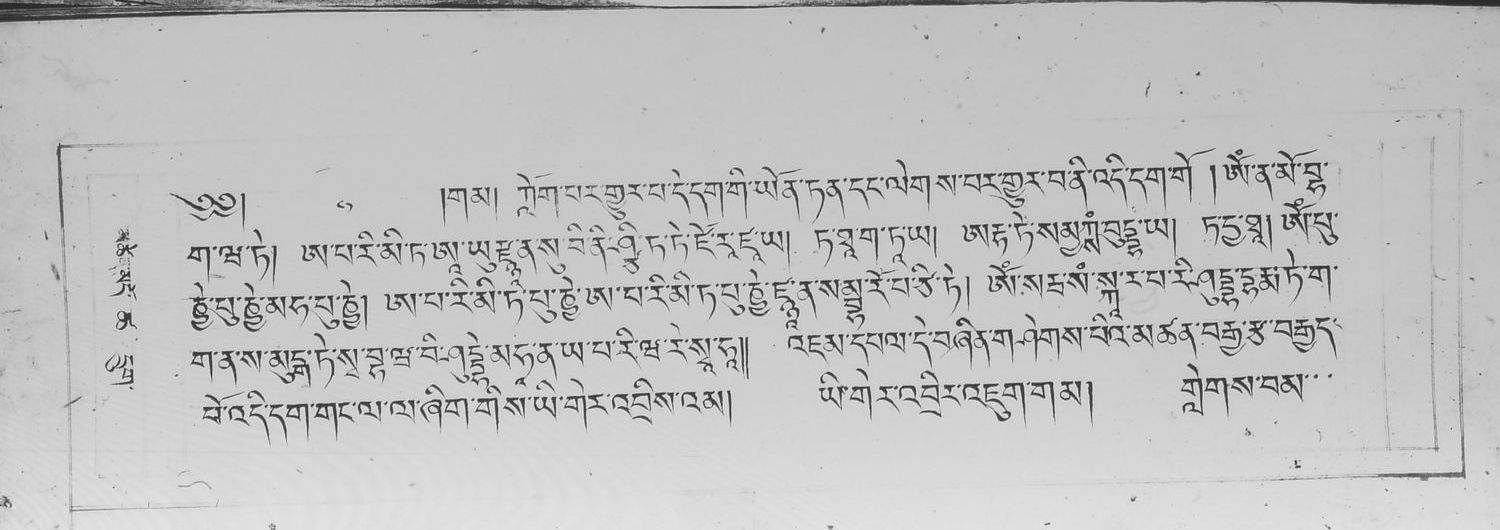 ༄༅། །གམ། ཀློག་པར་གྱུར་པ་དེ་དག་གི་ཡོན་ཏན་དང་ལེགས་པར་གྱུར་བ་ནི་འདི་དག་གོ །ཨོཾ་ན་མོ་བྷ་
ག་ཝ་ཏེ། ཨ་པ་རི་མི་ཏ་ཨཱ་ཡུ་རྫྙཱ་ན་སུ་བི་ནི་ཤྩི་ཏ་ཏེ་ཛོ་རཱ་ཛཱ་ཡ། ཏ་ཐཱ་ག་ཏཱ་ཡ། ཨརྷ་ཏེ་སམྱཀྶཾ་བུདྡྷཱ་ཡ། ཏདྱ་ཐཱ། ཨོཾ་པུ་
ཎྱེ་པུ་ཎྱེ་མ་ཧཱ་པུ་ཎྱེ། ཨ་པ་རི་མི་ཏ་པུ་ཎྱེ་ཨ་པ་རི་མི་ཏ་པུ་ཎྱེ་ཛྙཱ་ན་སམྦྷཱ་རོ་པ་ཙི་ཏེ། ཨོཾ་སརྦ་སཾ་སྐཱ་ར་པ་རི་ཤུདྡྷ་དྷརྨ་ཏེ་ག་
ག་ན་ས་མུདྒ་ཏེ་སྭ་བྷཱ་ཝ་བི་ཤུདྡྷེ་མ་ཧཱ་ན་ཡ་པ་རི་ཝཱ་རེ་སྭཱ་ཧཱ།། འཇམ་དཔལ་དེ་བཞིན་གཤེགས་པའི་མཚན་བརྒྱ་རྩ་བརྒྱད་
པོ་འདི་དག་གང་ལ་ལ་ཞིག་གིས་ཡི་གེར་འབྲིས་འམ། ཡི་གེར་འབྲིར་འཇུག་གམ། གླེགས་བམ་